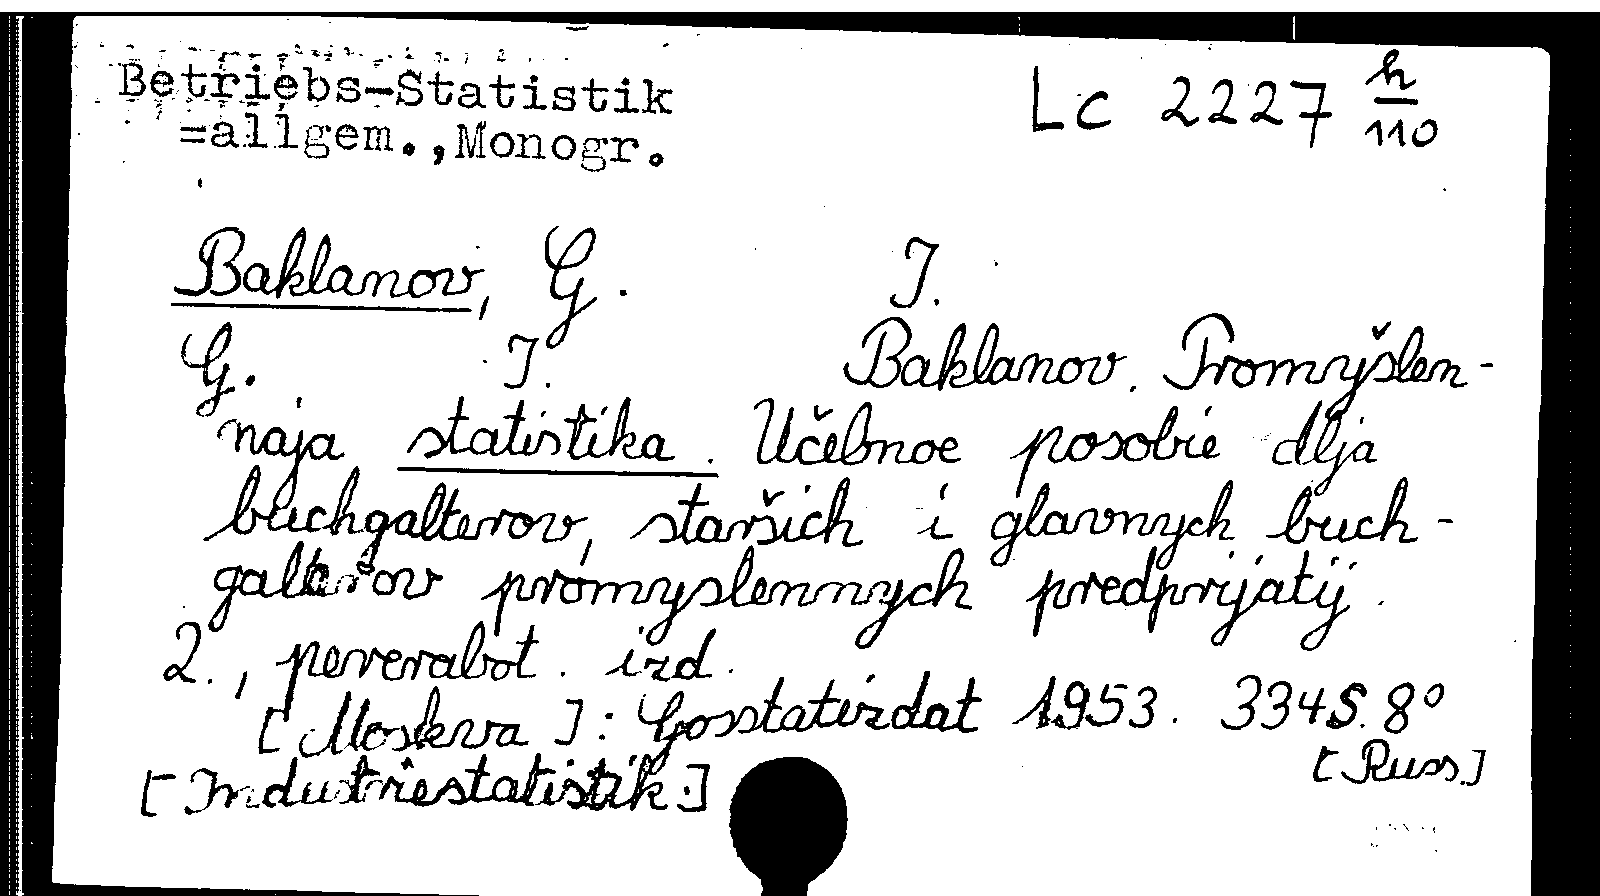 Betriebs-Statistik
=allgem.,Monogr.
Lc 2227 h/110
Baklanov, G. I.
G. I. Baklanov. Promyšlen-
naja statistika. Učebnoe posobie dlja
buchgalterov, staršich i glavnych buch-
galterov promyslennych predprijatij.
2., pererabot. izd.
[Moskva]: Gosstatizdat 1953. 334 S. 8°
[Russ.]
[Industriestatistik.]